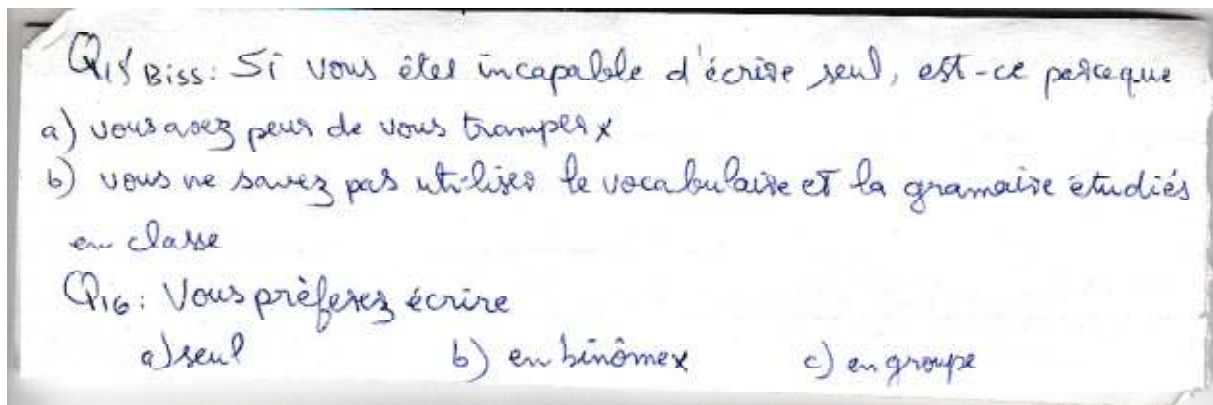 Q15 Biss: Si vous êtes incapable d'écrire seul, est-ce parceque
a) vous avez peur de vous tramper x
b) vous ne savez pas utiliser le vocabulaire et la gramaire étudiés
en classe
Q16: Vous préferez écrire
a) seul b) en binôme x c) en groupe